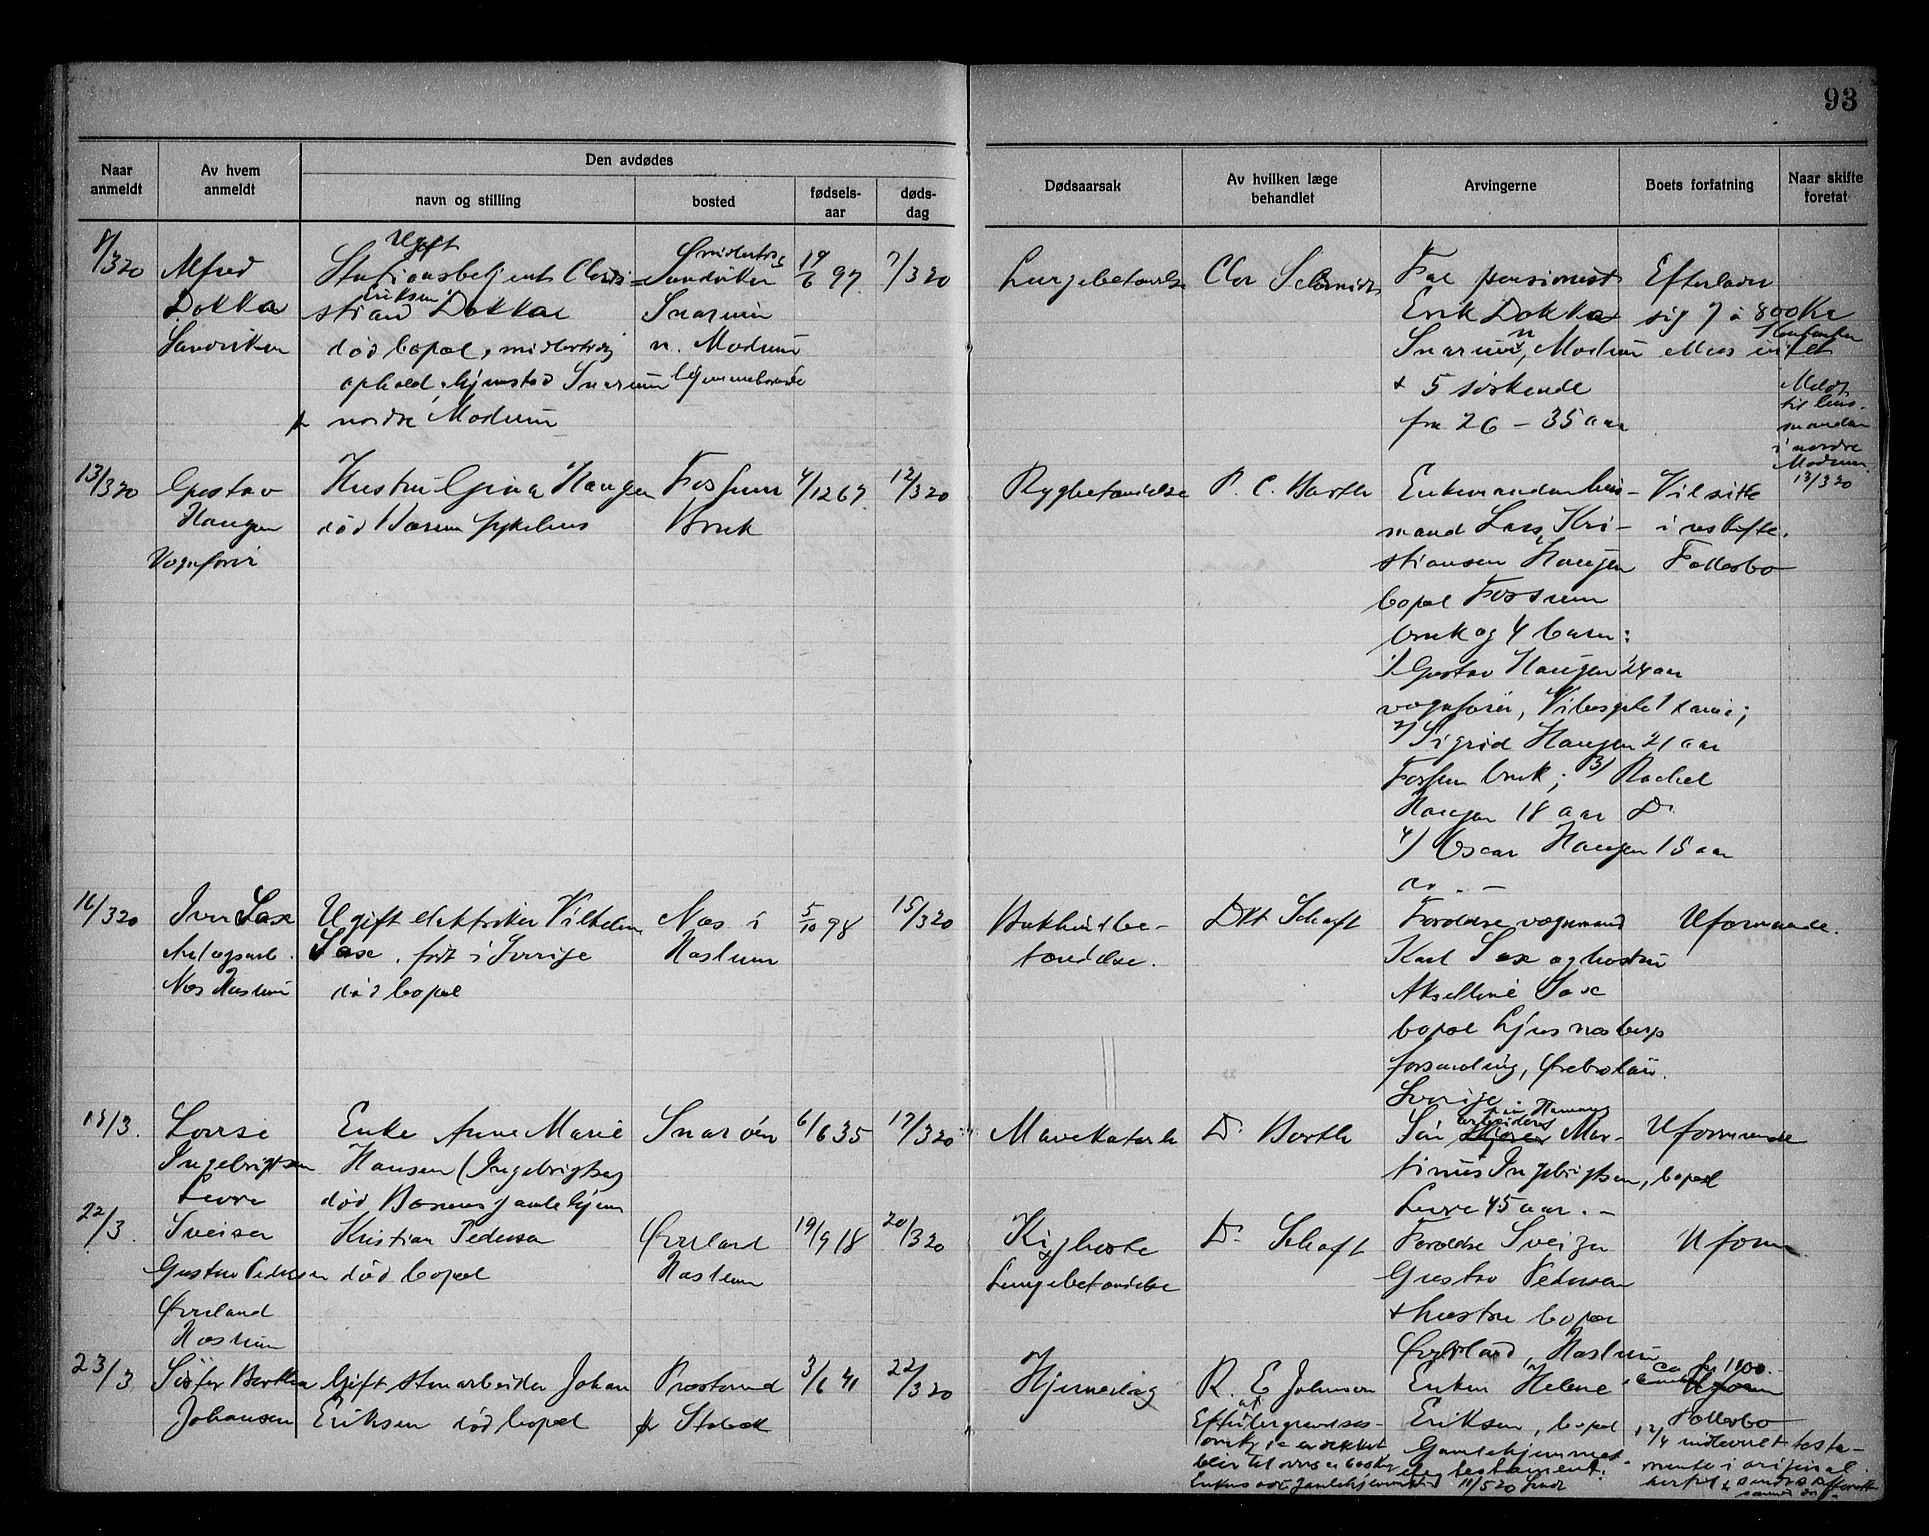 93
Naar anmeldt
Av hvem anmeldt
Den avdødes
navn og stilling
bosted
fødsels-aar
døds-dag
Dødsaarsak
Av hvilken læge behandlet
Arvingerne
Boets forfatning
Naar skifte foretat
8/3 20
Alfred
Dokka
Sandviken
Ugift
Stationsbetjent Chris-
Eriksen
stian Dokka
død bopæl, midlertidig
ophold. hjemsted Snarum
nordre Modum
midlertidig
Sandviken
Snarum
n. Modum
hjemmehørende
19/6 97
7/3 20
Lungebetændelse
Chr Schmidt
Far pensionist
Erik Dokka
Snarum, n Modum
+ 5 søskende
fra 26 - 35 aar
Efterlader
sig 7 à 800 Kr
Meldt
til lens-
manden
i nordre
Modum
13/3 20
13/3 20
Gustav
Haugen
Vognfører
Hustru Gina Haugen
død Bærum sykehus
Fossum
Bruk
4/12 67
12/3 20
Rygbetændelse
P. C. Barth
Enkemanden hus-
mand Lars Kri-
stiansen Haugen
bopæl Fossum
bruk og 4 barn:
1/ Gustav Haugen 24 aar
vognfører,
2/ Sigrid Haugen 21 aar
Fossum bruk; 3/ Rachel
Haugen 18 aar Do
4/ Oscar Haugen 15 aar
do. -
Vil sitte
i uskifte.
Follerbo
16/3 20
Iver Saxe
Anlægsarb.
Næs Haslum
Ugift elektriker Vilhelm
Saxe, født i Sverige
død bopæl
Næs i
Haslum
5/10 98
15/3 20
Bukhindbe-
tændelse.
Dr Schaft
Forældre vognmand
Karl Saxe og hustru
Akselline Saxe
bopæl Ljusnarsberg
forsamling, Ørebro län.
Sverige
Uformuende.
18/3.
Lovise
Ingebrigtsen
Levre
Enke Anne Marie
Hansen (Ingebrigtsen)
død Bærums gamlehjem
Snarøen
6/6 35
17/3 20
Mavekatarh
Dr Barth
Søn arbeider Mar-
tinus Ingebrigtsen, bopæl
Levre 45 aar. -
Uformuende
22/3.
Sveiser
Gustav Pedersen
Øverland
Haslum
Kristian Pedersen
død bopæl
Øverland
Haslum
19/9 18
20/3 20
Kighoste
Lungebetændelse
Dr Schaft
Forældre Sveizer
Gustav Pedersen
+ hustru bopæl
Øverland, Haslum
Uform
23/3
Søster Bertha
Johansen
Gift stenarbeider Johan
Eriksen død bopæl
Præsterud
pr Stabæk
3/6 41
22/3 20
Hjerneslag
R. E Johnson
Enken Helene
Eriksen, bopæl
Gamlehjemmet.
testament.
11/5 20
ca kr 1100.-
Uform
Follerbo
12/4 indleveret testa-
mente i original